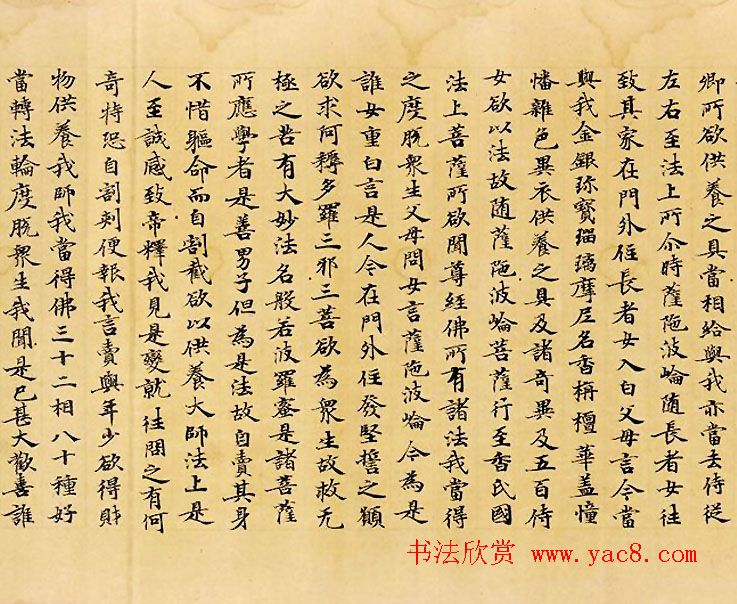 卿所欲供養之具當相給與我亦當去侍從
左右至法上所尒時薩陁波崘随長者女往
致其家在門外住長者女入白父母言今當
與我金銀珎寶瑠璃摩尼名香栴檀華盖憧
憣雜色異衣供養之具及諸奇異及五百侍
女欲以法故随薩陁波崘菩薩行至香氏國
法上菩薩所欲聞尊經佛所有諸法我當得
之度脫衆生父母問女言薩陁波崘今為是
誰女重白言是人今在門外住發堅誓之願
欲求何耨多羅三耶三菩欲為衆生故救无
極之苦有大妙法名般若波羅蜜是諸菩薩
所應學者是善男子但為是法故自賣其身
不惜軀命而自割截欲以供養大師法上是
人至誠感致帝釋我見是變就往問之有何
奇特恐自割刾便報我言賣與年少欲得財
物供養我師我當得佛三十二相八十種好
當轉法輪度脫衆生我聞是已甚大歡喜誰
书法欣赏 www.yac8.com